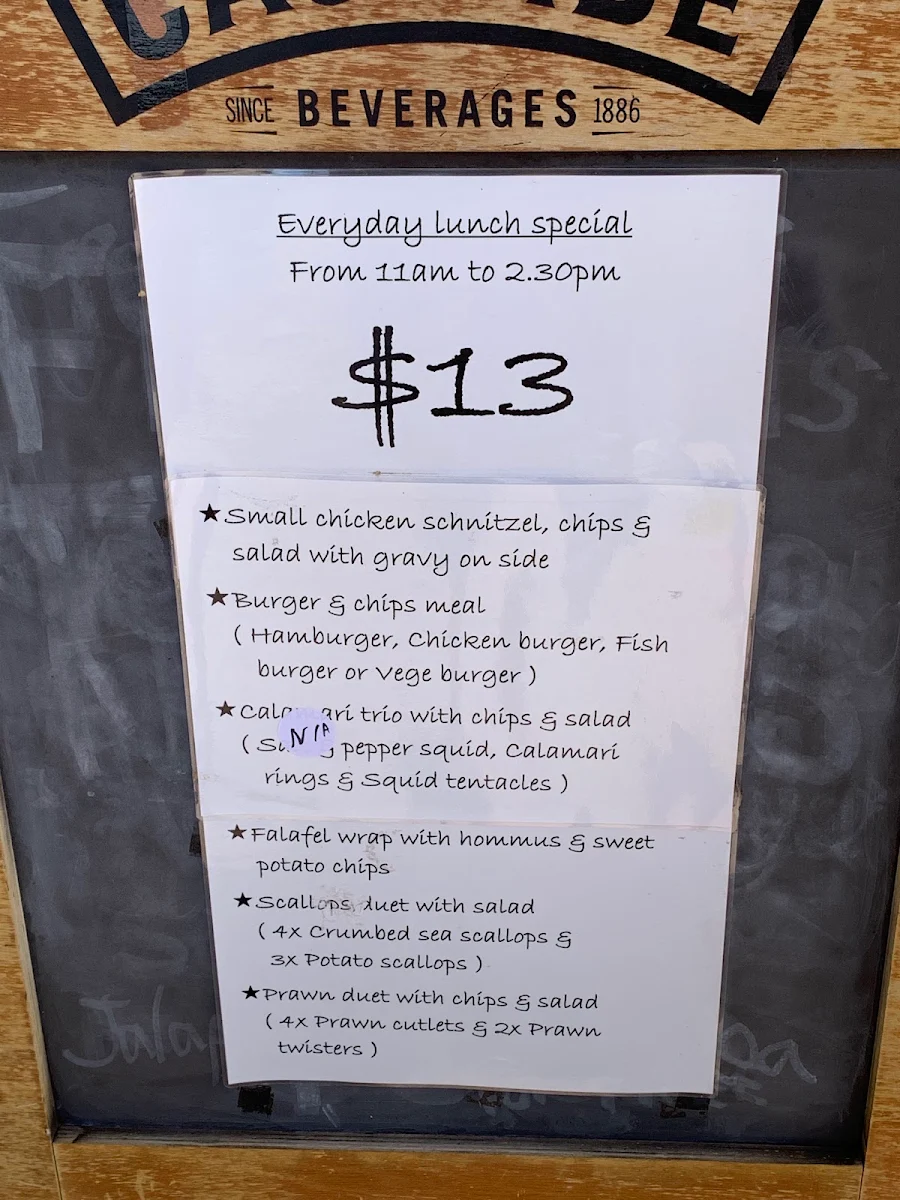 SINCE BEVERAGES 1886
Everyday lunch special
From 11am to 2.30pm
$13
★ Small chicken schnitzel, chips &
salad with gravy on side
★ Burger & chips meal
( Hamburger, Chicken burger, Fish
burger or Vege burger )
★ Calamari trio with chips & salad
N/A
( pepper squid, Calamari
rings & Squid tentacles )
★ Falafel wrap with hommus & sweet
potato chips
★ Scallops duet with salad
( 4x Crumbed sea scallops &
3x Potato scallops )
★ Prawn duet with chips & salad
( 4x Prawn cutlets & 2x Prawn
twisters )